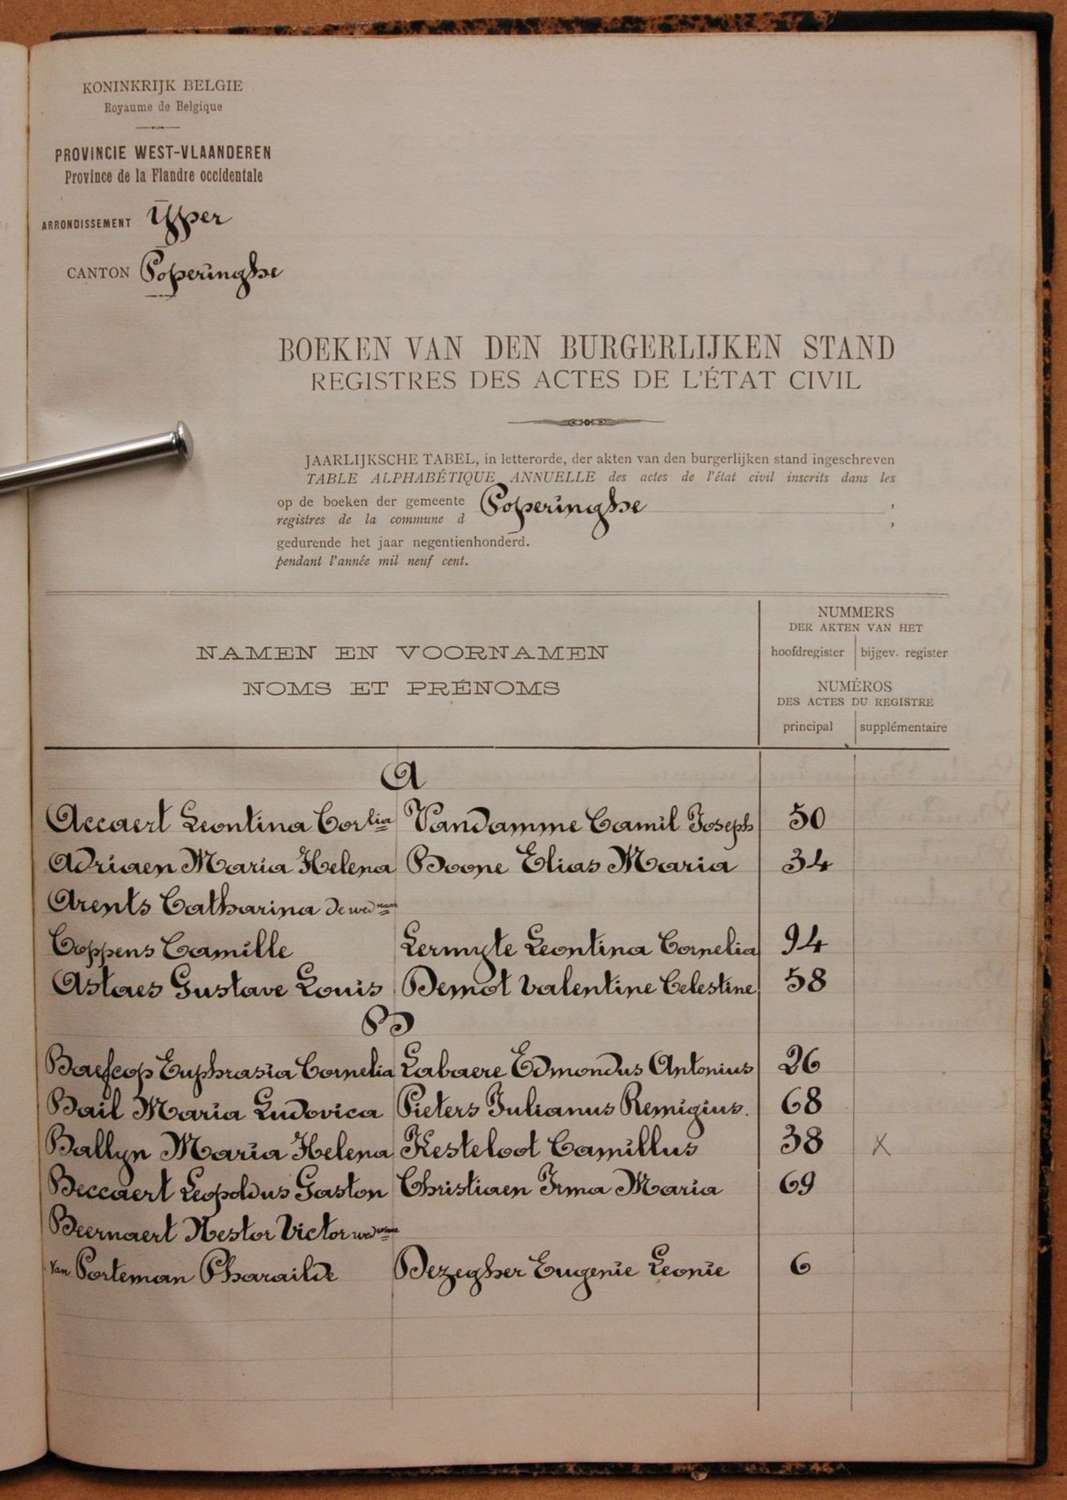 KONINKRIJK BELGIE
Royaume de Belgique
PROVINCIE WEST-VLAANDEREN
Province de la Flandre occidentale
ARRONDISSEMENT Yper
CANTON Poperinghe
BOEKEN VAN DEN BURGERLIJKEN STAND
REGISTRES DES ACTES DE L'ÉTAT CIVIL
JAARLIJKSCHE TABEL, in letterorde, der akten van den burgerlijken stand ingeschreven
TABLE ALPHABÉTIQUE ANNUELLE des actes de l'état civil inscrits dans les
op de boeken der gemeente Poperinghe ,
registres de la commune d ,
gedurende het jaar negentienhonderd.
pendant l'année mil neuf cent.
NAMEN EN VOORNAMEN
NOMS ET PRÉNOMS
NUMMERS
DER AKTEN VAN HET
hoofdregister bijgev. register
NUMÉROS
DES ACTES DU REGISTRE
principal supplémentaire
A
Accaert Leontina Corlia Vandamme Camil Joseph 50
Adriaen Maria Helena Boone Elias Maria 34
Arents Catharina de wedn
Coppens Camille Lermyte Leontina Cornelia 94
Astaes Gustave Louis Demot Valentine Celestine 58
B
Baefcop Euphrasia Cornelia Labaere Edmondus Antonius 26
Bail Maria Ludovica Pieters Julianus Remigius. 68
Ballyn Maria Helena Kesteloot Camillus 38 X
Beccaert Leopoldus Gaston Christiaen Irma Maria 69
Beernaert Nestor Victor
van Porteman Pharaïlde Dezegher Eugenie Leonie 6